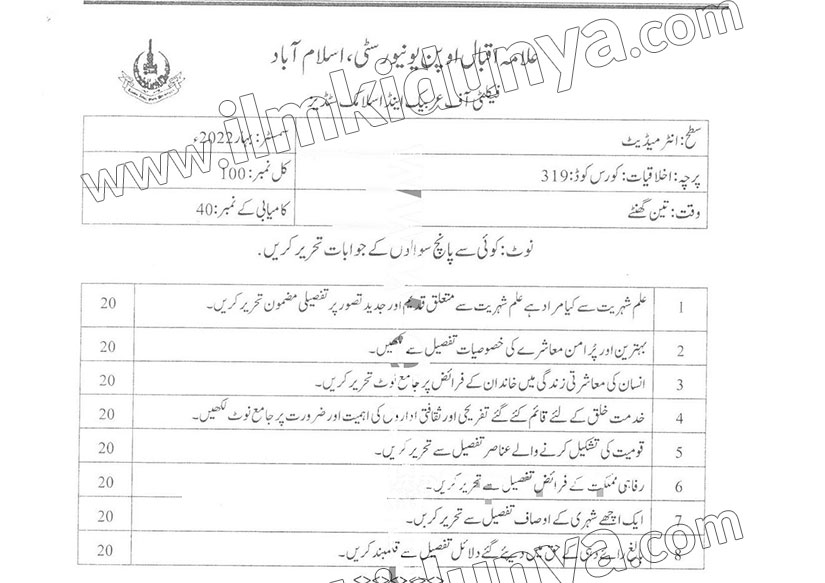 علامہ اقبال اوپن یونیورسٹی، اسلام آباد
فیکلٹی آف عریبک اینڈ اسلامک سٹڈیز
سطح: انٹرمیڈیٹ سمسٹر: بہار 2022ء
پرچہ: اخلاقیات: کورس کوڈ: 319 کل نمبر: 100
وقت: تین گھنٹے کامیابی کے نمبر: 40
نوٹ: کوئی سے پانچ سوالوں کے جوابات تحریر کریں.
1 علم شہریت سے کیا مراد ہے علم شہریت سے متعلق قدیم اور جدید تصور پر تفصیلی مضمون تحریر کریں۔ 20
2 بہترین اور پُرامن معاشرے کی خصوصیات تفصیل سے لکھیں۔ 20
3 انسان کی معاشرتی زندگی میں خاندان کے فرائض پر جامع نوٹ تحریر کریں۔ 20
4 خدمت خلق کے لئے قائم کئے گئے تفریحی اور ثقافتی اداروں کی اہمیت اور ضرورت پر جامع نوٹ لکھیں۔ 20
5 قومیت کی تشکیل کرنے والے عناصر تفصیل سے تحریر کریں۔ 20
6 رفاہی مملکت کے فرائض تفصیل سے تحریر کریں۔ 20
7 ایک اچھے شہری کے اوصاف تفصیل سے تحریر کریں۔ 20
8 بالغ رائے دہی کے حق میں دیئے گئے دلائل تفصیل سے قلمبند کریں۔ 20
www.ilmkidunya.com
www.ilmkidunya.com